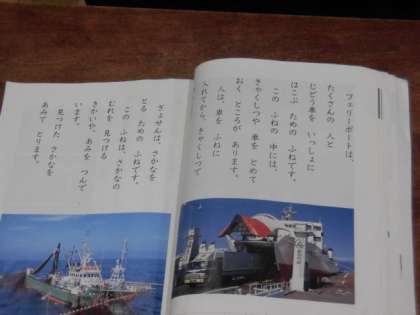 フェリーボートは、
たくさんの 人と
じどう車を いっしょに
はこぶ ための ふねです。
この ふねの 中には、
きゃくしつや 車を とめて
おく ところが あります。
人は、車を ふねに
入れてから、きゃくしつで
ぎょせんは、さかなを
とる ための ふねです。
この ふねは、さかなの
むれを 見つける
きかいや、あみを つんで
います。
見つけた さかなを
あみで とります。